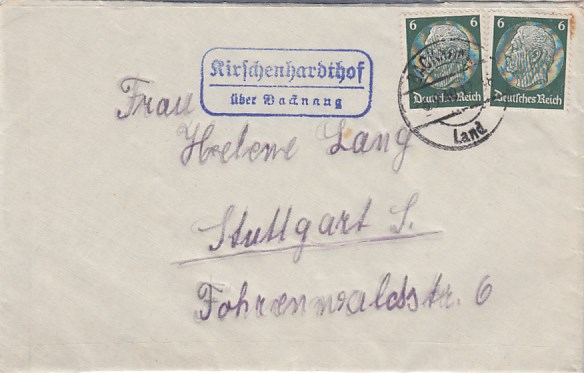 6 6
Deutsches Reich Deutsches Reich
BACKNANG
Land
Kirschenhardthof
über Backnang
Frau
Helene Lang
Stuttgart S.
Fohrenwaldstr. 6